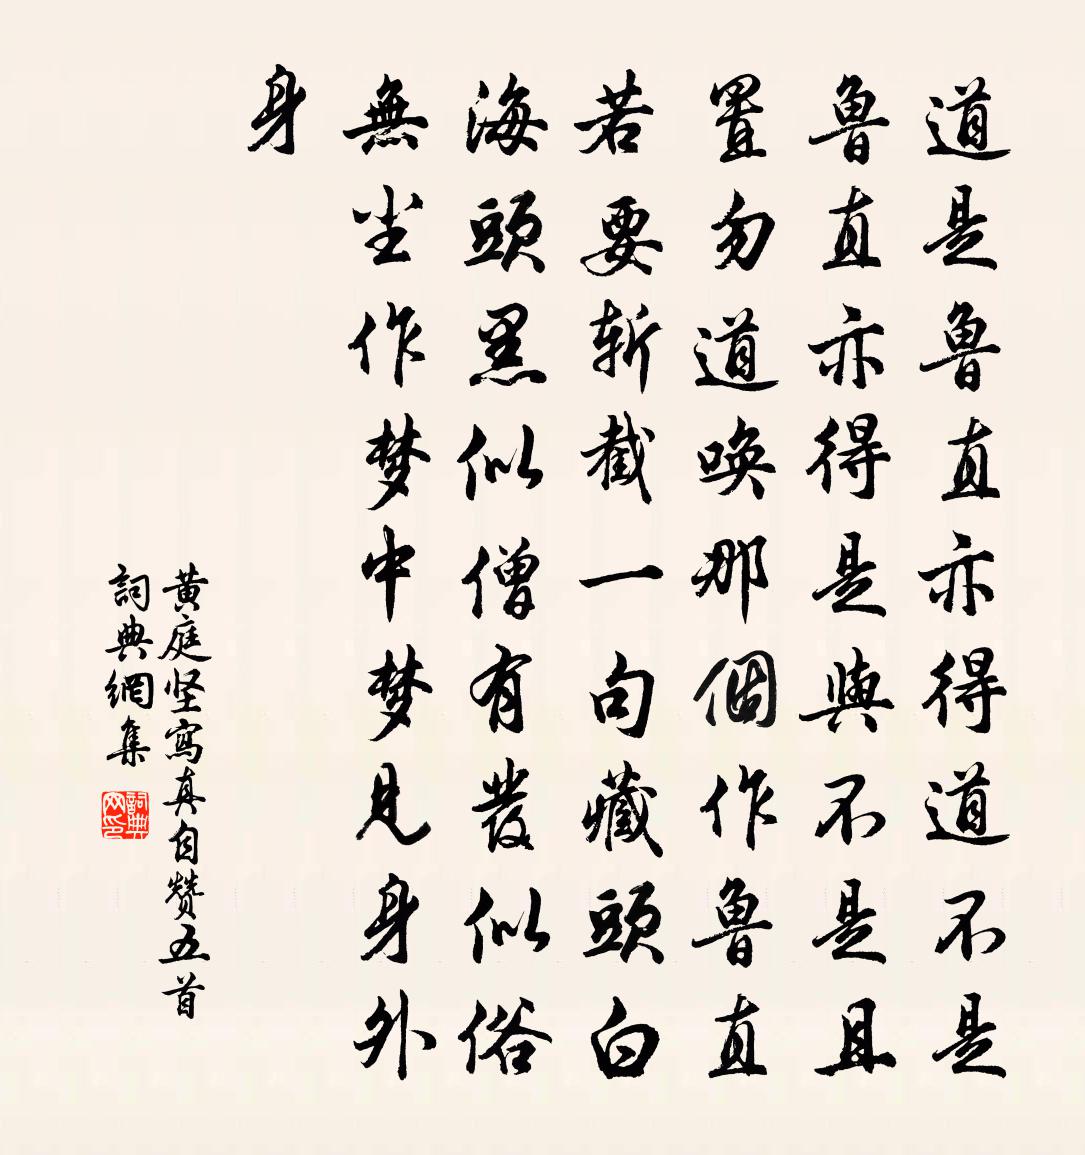 道是魯直亦得道不是
魯直亦得是與不是且
置勿道唤那個作魯直
若要斬截一句藏頭白
海頭黑似僧有發似俗
無尘作梦中梦見身外
身
黄庭坚寫真自赞五首
詞典網集
詞典
网印